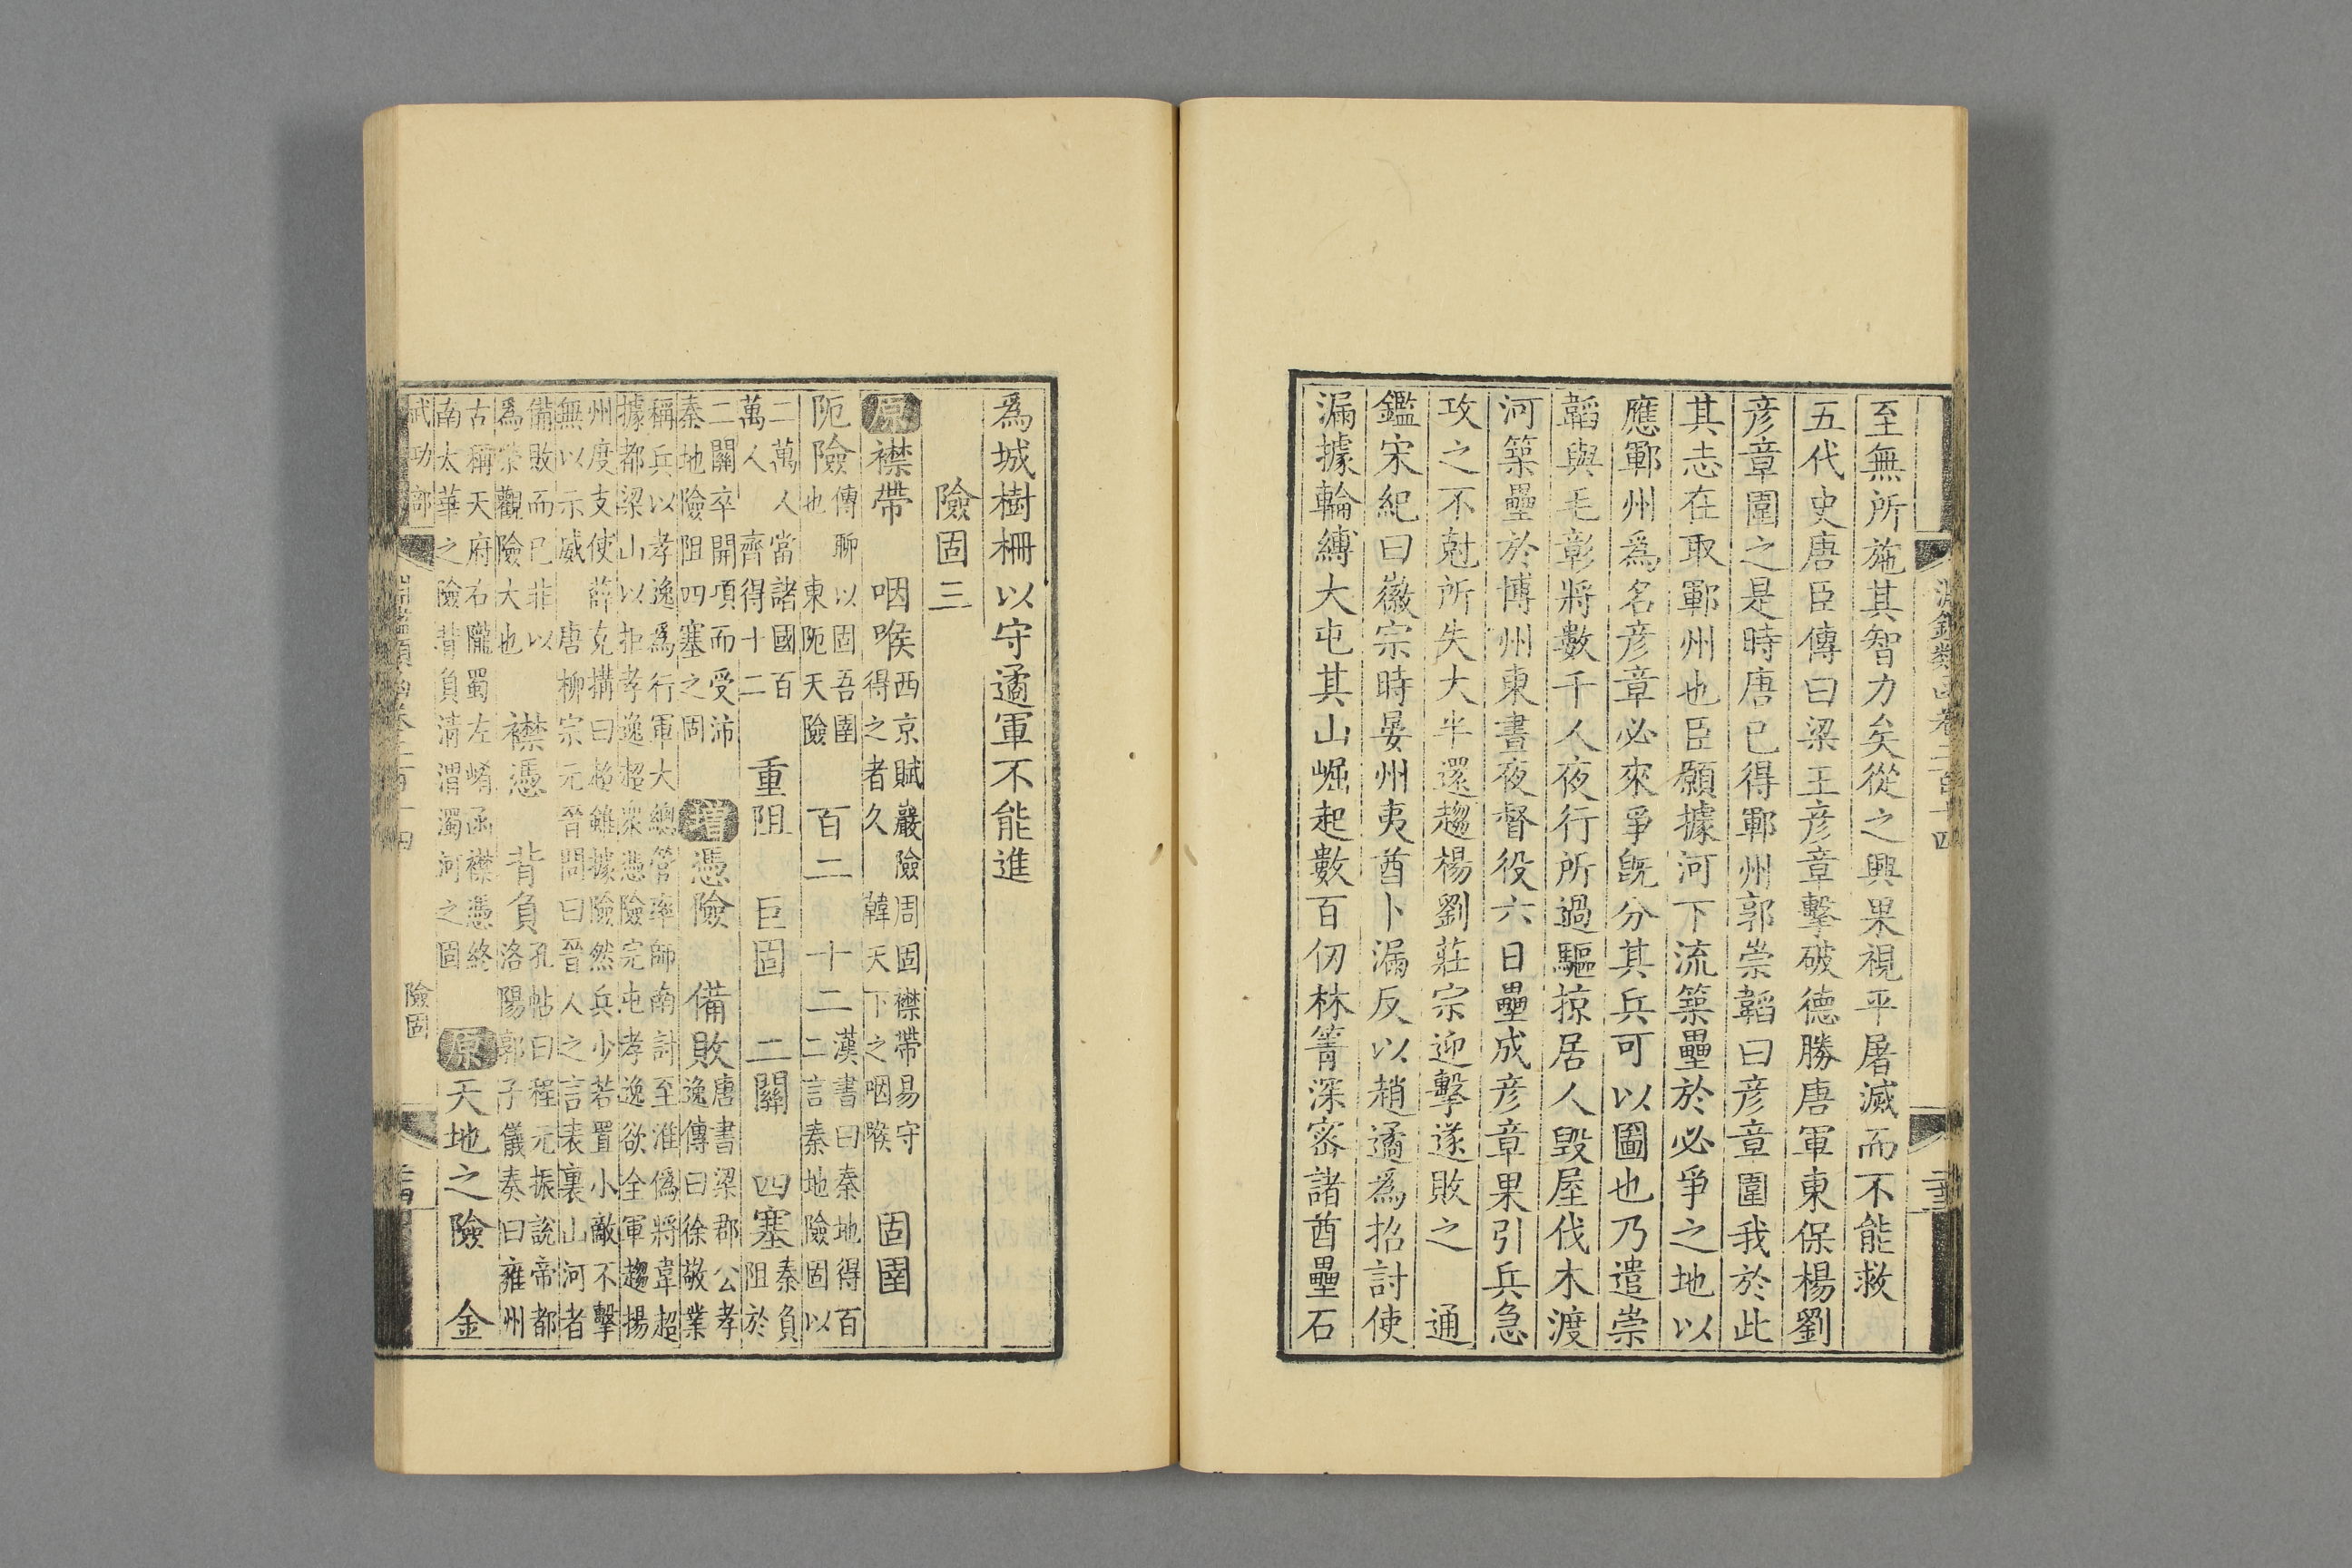 淵鑑類函卷二百十四
至無所施其智力矣從之興果視平屠滅而不能救
五代史唐臣傳曰梁王彦章擊破德勝唐軍東保楊劉
彦章圍之是時唐已得鄆州郭崇韜曰彦章圍我於此
其志在取鄆州也臣願據河下流築壘於必爭之地以
應鄆州爲名彦章必來爭旣分其兵可以圖也乃遣崇
韜與毛彰將數千人夜行所過驅掠居人毀屋伐木渡
河築壘於博州東晝夜督役六日壘成彦章果引兵急
攻之不尅所失大半還趨楊劉莊宗迎擊遂敗之　通
鑑宋紀曰徽宗時晏州夷酋卜漏反以趙遹爲招討使
漏據輪縛大屯其山崛起數百仞林箐深密諸酋壘石
爲城樹柵以守遹軍不能進
險固三
原襟帶　咽喉西京賦巖險周固襟帶易守
得之者久　韓天下之咽喉　固圉
阨險傳聊以固吾圉
也　東阨天險　百二　十二漢書曰秦地得百
二言秦地險固以
二萬人當諸國百
萬人　齊得十二　重阻　巨固　二關　四塞秦負
阻於
二關卒開項而受沛
秦地險阻四塞之固　增憑險　備敗唐書梁郡公孝
逸傳曰徐敬業
稱兵以孝逸爲行軍大總管率師南討至淮僞將韋超
據都梁山以拒孝逸超衆憑險完屯孝逸欲全軍趨揚
州度支使薛克搆曰超雖據險然兵少若置小敵不擊
無以示威　唐柳宗元晉問曰晉人之言表裏山河者
備敗而已非以
爲榮觀險大也　襟憑　背負孔帖曰程元振說帝都
洛陽郭子儀奏曰雍州
古稱天府右隴蜀左崤函襟憑終
南太華之險背負清渭濁河之固　原天地之險　金
險固